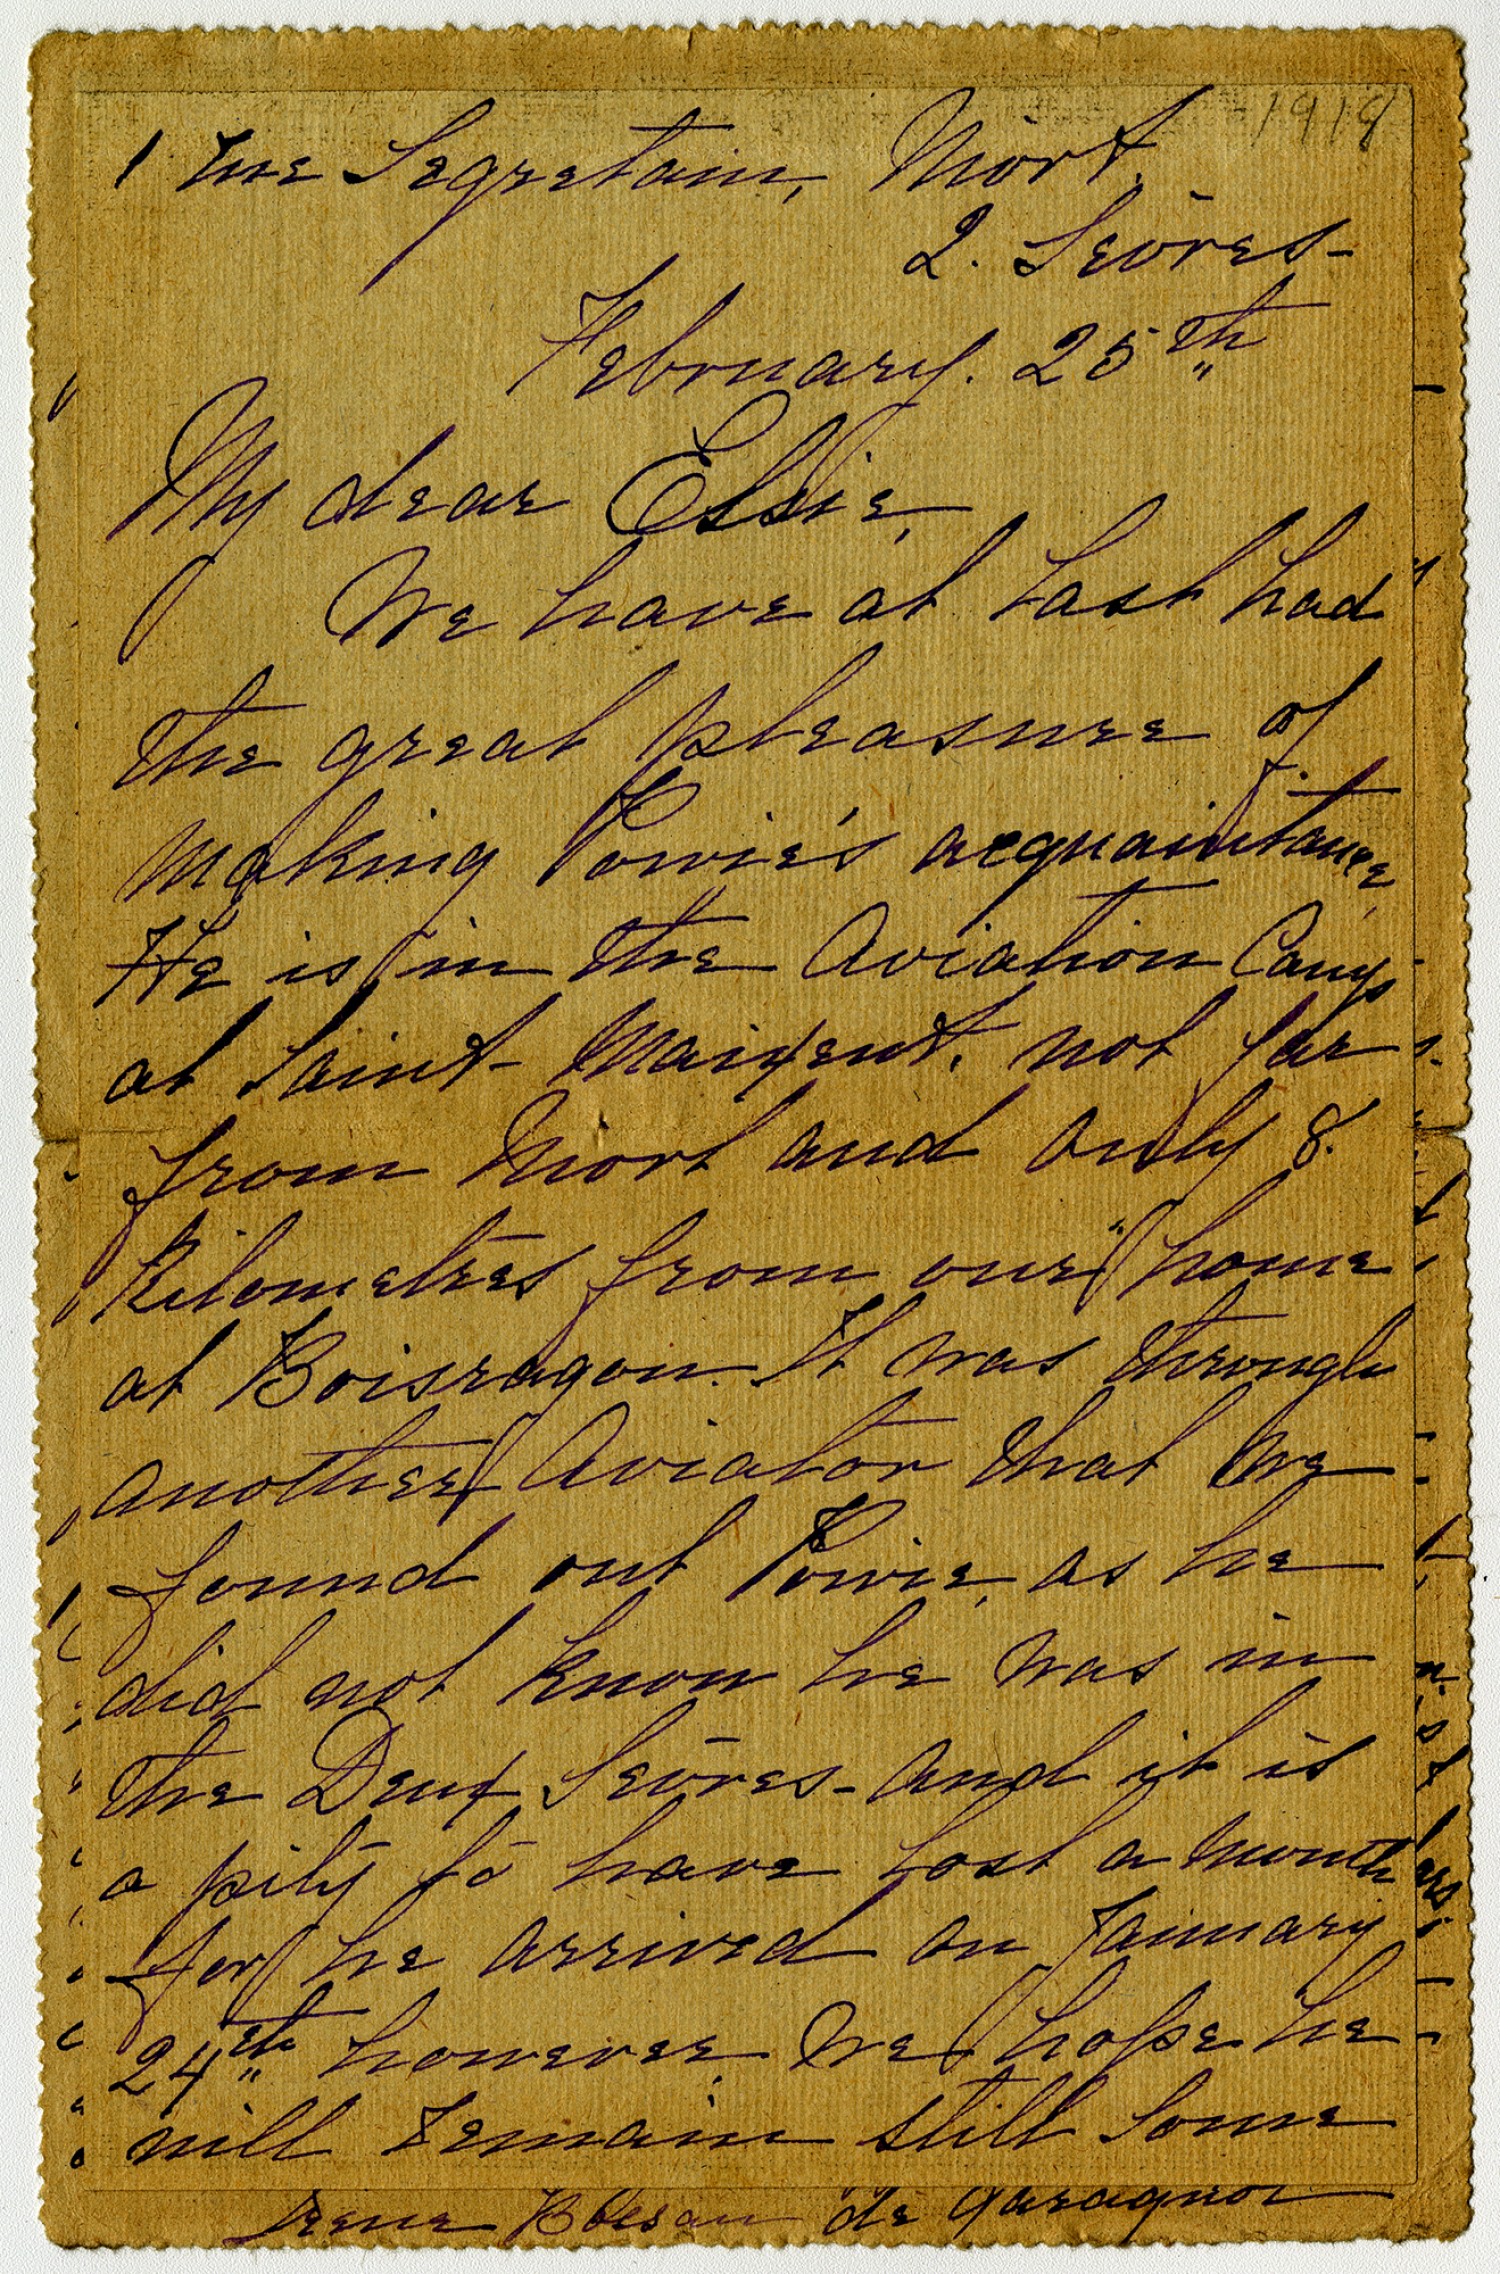 1918
1 rue Segretain, Niort.
2. Sèvres-
February. 25th
My dear Essie,
We have at last had
the great pleasure of
making Powie's acquaintance,
He is in the Aviation Camp
at Saint-Maixent, not far
from Niort and only 8.
Kilometres from our "home
at Boisragon. It was through
another Aviator that we
found out Powie, as he
did not know he was in
the Deux Sèvres- and it is
a pity to have lost a month
for he arrived on January
24th however, we hope he
will remain still some
Irene de Garagnol